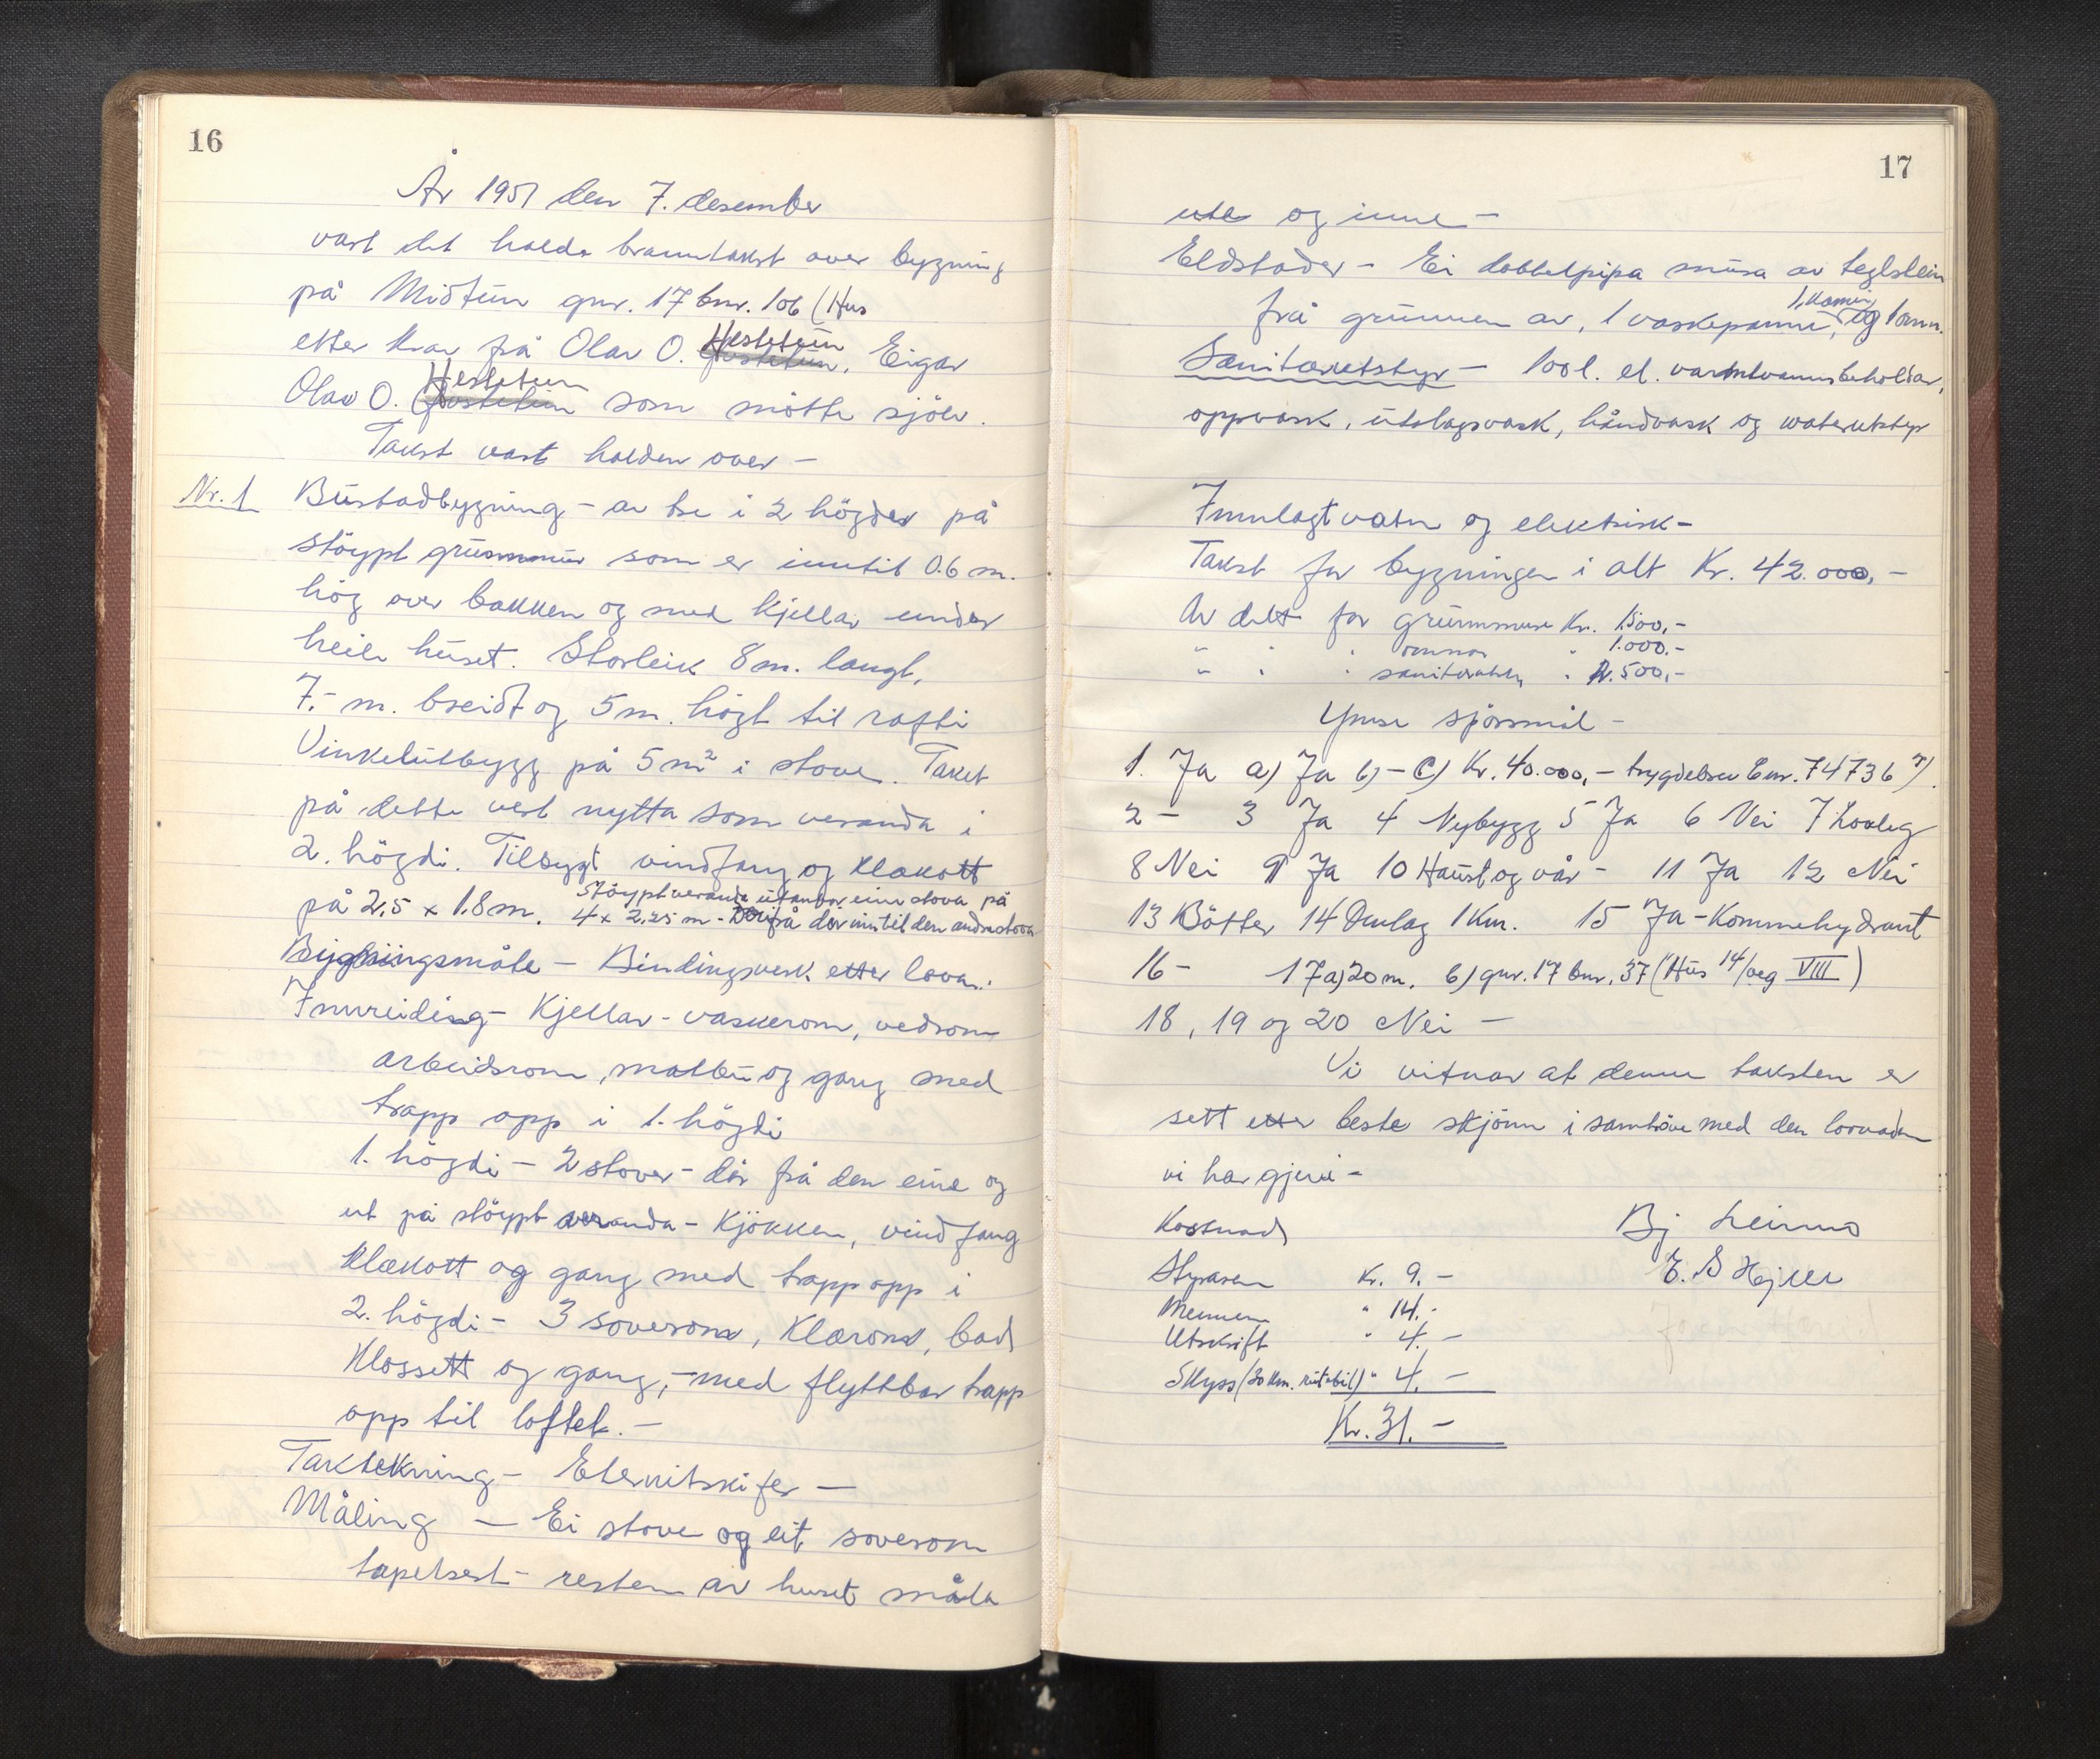 16
År 1951 den 7. desember
vart det halde branntakst over bygning
på Midtun gnr. 17 bnr. 106 (Hus
etter krav frå Olav O. Hestetun. Eigar
Olav O. Hestetun som møtte sjølv.
Takst vart halden over —
Nr. 1 Bustadbygning – av tre i 2 högder på
støypt grunnmur som er inntil 0.6 m.
høg over bakken og med kjellar under
heile huset. Storleik 8 m. langt,
7.- m. breidt og 5 m. högt til rafti
Vinkelutbygg på 5 m² i stove. Taket
på dette vert nytta som veranda i
2. högdi. Tilbygt vindfang og klækott
Støypt veranda utanfor eine stova på
på 2,5 x 1.8 m. 4 x 2,25 m - Derifrå dør inn til den andre stova
Bygningsmåte – Bindingsverk etter lova.
Innreiding – Kjellar – vaskerom, vedrom
arbeidsrom, matbu og gang med
trapp opp i 1. högdi
1. högdi – 2 stover – dör frå den eine og
ut på støypt veranda – Kjökken, vindfang
Klækott og gang med trapp opp i
2. högdi – 3 soverom, Klærom, bad
Klossett og gang, – med flyttbar trapp
opp til loftet. –
Taktekning – Eternitskifer —
Måling — Ei stove og eit soverom
tapetsert – resten av huset måla
17
ute og inne –
Eldstader – Ei dobbelpipa mura av teglstein
1 kamin
frå grunnen av, 1 vaskepanne, og 1 omn.
Sanitærutstyr – 100 l. el. varmtvannsbeholdar,
oppvask, utslagsvask, håndvask og waterutstyr
Innlagt vatn og elektrisk –
Takst for bygningen i alt Kr. 42.000,-
Av dett for grunnmur Kr. 1.500,-
" " " omnar " 1.000.-
" " " sanitæranl. " 2.500,-
Ymse spörsmål –
1. Ja a) Ja b) – c) Kr. 40.000,- trygdebrev bnr. 74736
2 – 3 Ja 4 Nybygg 5 Ja 6 Nei 7 Lovleg
8 Nei 9 Ja 10 Haust og vår – 11 Ja 12 Nei
13 Bötter 14 Omlag 1 Km. 15 Ja – Kommehydrant
16 – 17 a) 20 m. b) gnr. 17 bnr. 37 (Hus 14/veg VIII)
18, 19 og 20 Nei –
Vi vitnar at denne taksten er
sett etter beste skjönn i samhøve med den lovnaden
vi har gjeve –
Kostnad Bj Leirmo
Styraren Kr. 9. –
Mennene " 14.-
Utskrift " 4. –
Skyss (20 km. rutebil) " 4. –
Kr. 31. –